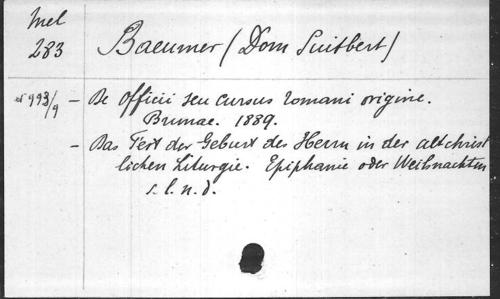 Mel
283
Baeumer (Dom Suitbert)
nº 993/9 - De Officii seu cursus romani origine.
Brunae. 1889.
- Das Fest der Geburt des Herrn in der altchrist
lichen Liturgie. Epiphanie oder Weihnachten
s. l. n. d.